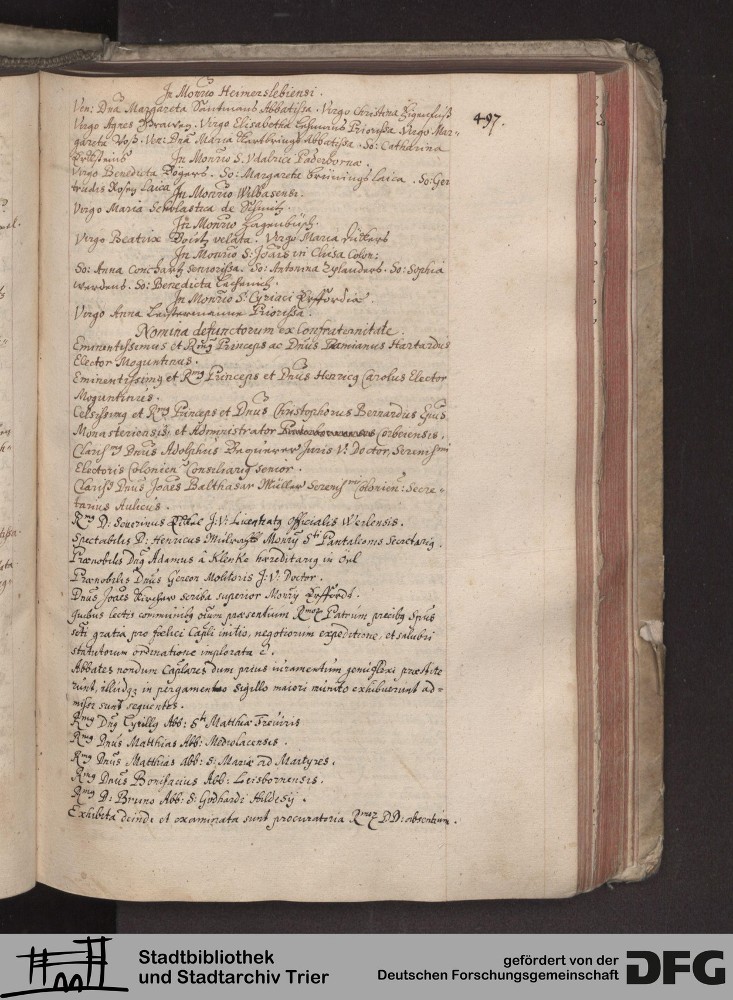 497.
In Monrio Heimerslebiensi.
Ven: Dna Margareta Santmans Abbatissa. Virgo Christina
Virgo Agnes Virgo Elisabetha Lehmans Priorissa. Virgo Mar-
gareta Voß. Ven: Dna Maria Abbatissa. So: Catharina
In Monrio S. Vdalrici Paderbornae.
Virgo Benedicta Rogers. So: Margareta Brünings laica. So: Ger
trudis Rosen Laica In Monrio Wilbasensi.
Virgo Maria Scholastica de Schmitz.
In Monrio Hagenbusch.
Virgo Beatrix velata. Virgo Maria
In Monrio S: Joais in Clusa Colon:
So: Anna seniorissa. So: Antonina Zylanders. So: Sophia
werdens. So: Benedicta
In Monrio S: Cyriaci Erffordiae.
Virgo Anna Priorissa.
Nomina defunctorum ex Confraternitate.
Eminentissimus et Rmus Princeps ac Dnus Damianus Hartardus
Elector Moguntinus.
Eminentissimus et Rmus Princeps et Dnus Henricus Carolus Elector
Moguntinus.
Celsissimus et Rmus Princeps et Dnus Christophorus Bernardus Epus
Monasteriensis et Administrator Corbeiensis.
Clarissmus Dnus Adolphus Juris V: Doctor, Serenissmi
Electoris Colonien: Consiliarius senior.
Clariss Dnus Joaes Balthasar Müller Serenissmi Colonien: Secre-
tarius Aulicus.
Rmus D: Severinus J:V: Licentiatus officialis Werlensis.
Spectabilis D: Henricus Monry Sti Pantaleonis Secretarius.
Praenobilis Dnus Adamus à Klenke haereditarius in
Praenobilis Dnus Gereon Molitoris J:V: Doctor.
Dnus Joaes Kircher scriba superior Monry Erffordt.
Quibus lectis communibus oium praesentium Rmor Patrum precibus Spus
sti gratia pro foelici Capli initio, negotiorum expeditione, et salubri
statutorum ordinatione implorata e.
Abbates nondum Caplares dum prius iuramentum genuflexi praestite
runt, illudq3 in pergameno sigillo maiori munito exhibuerunt ad-
missi sunt sequentes.
Rmus Dnus Cyrillus Abb: Sti Matthiae Treviris
Rmus Dnus Matthias Abb: Mediolacensis.
Rmus Dnus Matthias abb: S: Mariae ad Martyres.
Rmus Dnus Bonifacius Abb: Leisbornensis.
Rmus D: Bruno Abb: S: Godhardi Hildesij.
Exhibita deinde et examinata sunt procuratoria Rmor DD: absentium.
Stadtbibliothek
und Stadtarchiv Trier
gefördert von der
Deutschen Forschungsgemeinschaft
DFG